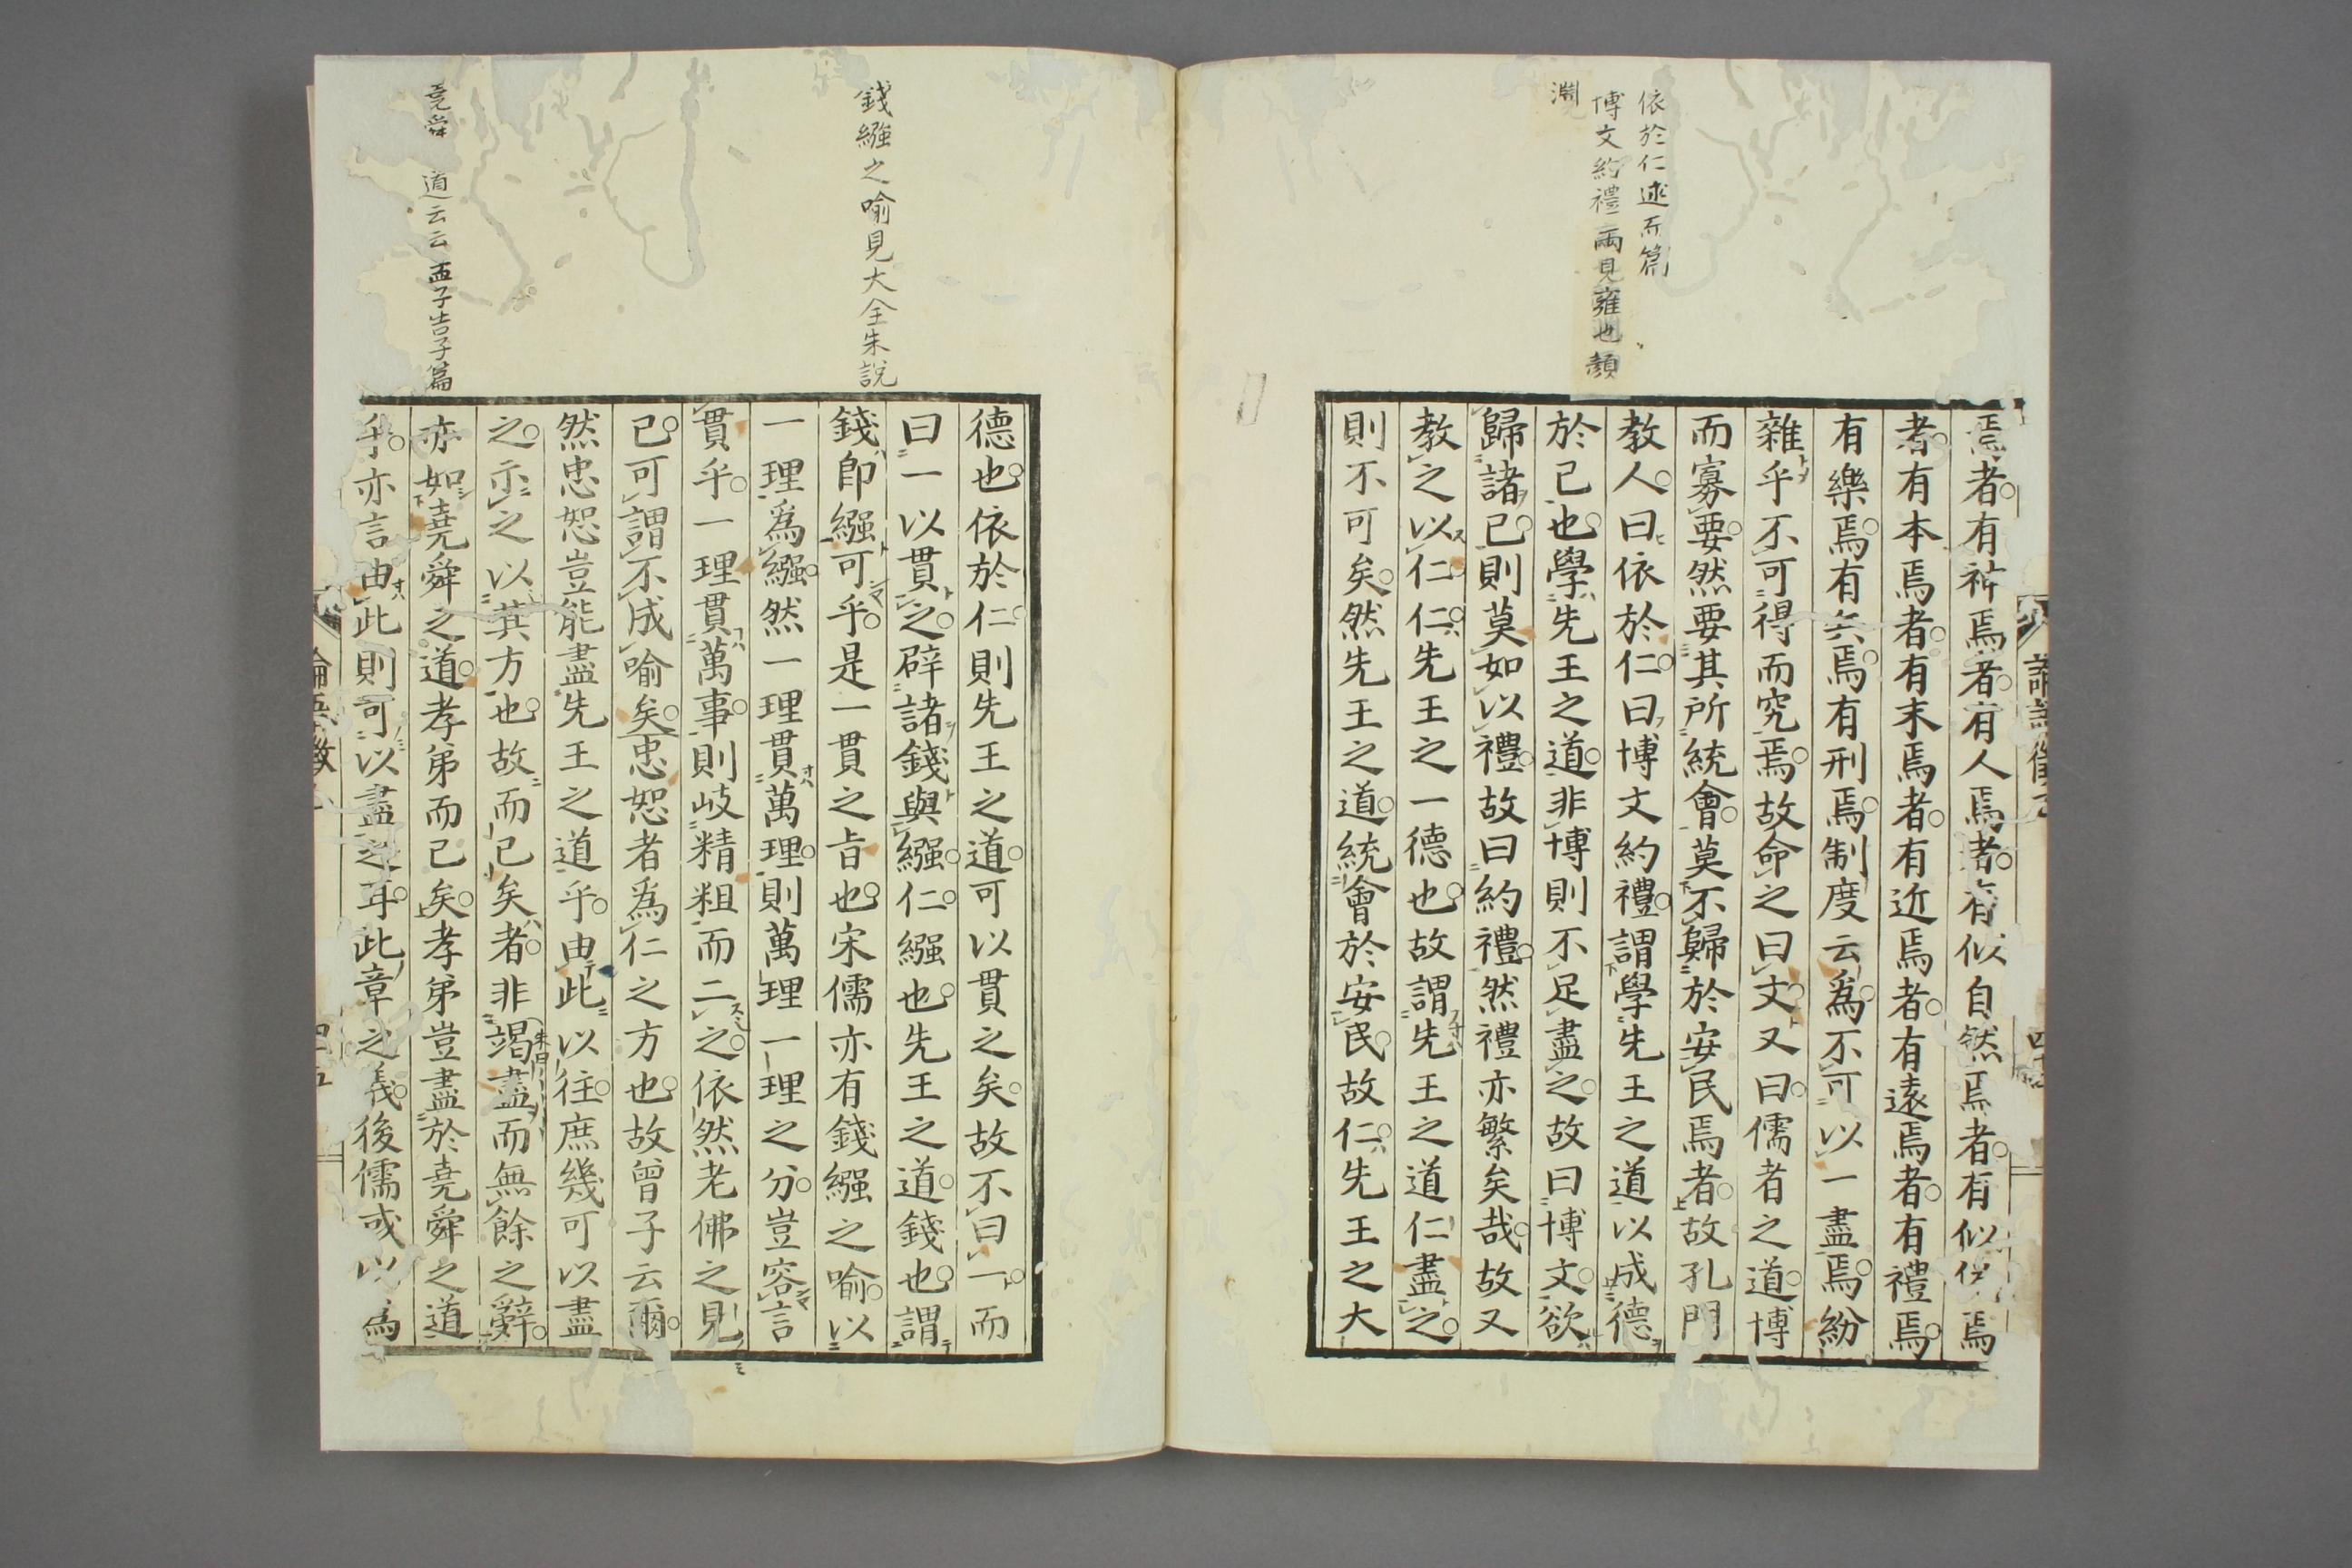 依於仁述而篇
博文約禮兩見雍也顏
淵
焉者有祈焉者有人焉者有似自然焉者有似焉
者有本焉者有末焉者有近焉者有遠焉者有禮焉
有樂焉有兵焉有刑焉制度云爲不可以一盡焉紛
雜乎不可得而究焉故命之曰文又曰儒者之道博
而寡要然要其所統會莫不歸於安民焉者故孔門
教人曰依於仁曰博文約禮謂學先王之道以成德
於己也學先王之道非博則不足盡之故曰博文欲
歸諸己則莫如以禮故曰約禮然禮亦繁矣哉故又
教之以仁仁先王之一德也故謂先王之道仁盡之
則不可矣然先王之道統會於安民故仁先王之大
錢繦之喻見大全朱說
堯舜 道云云孟子告子篇
德也依於仁則先王之道可以貫之矣故不曰一而
曰一以貫之辟諸錢與繦仁繦也先王之道錢也謂
錢卽繦可乎是一貫之旨也宋儒亦有錢繦之喻以
一理爲繦然一理貫萬理則萬理一理之分豈容言
貫乎一理貫萬事則岐精粗而二之依然老佛之見
已可謂不成喻矣忠恕者爲仁之方也故曾子云爾
然忠恕豈能盡先王之道乎由此以往庶幾可以盡
之示之以其方也故而已矣者非竭盡而無餘之辭
亦如堯舜之道孝弟而已矣孝弟豈盡於堯舜之道
乎亦言由此則可以盡之耳此章之義後儒或以爲